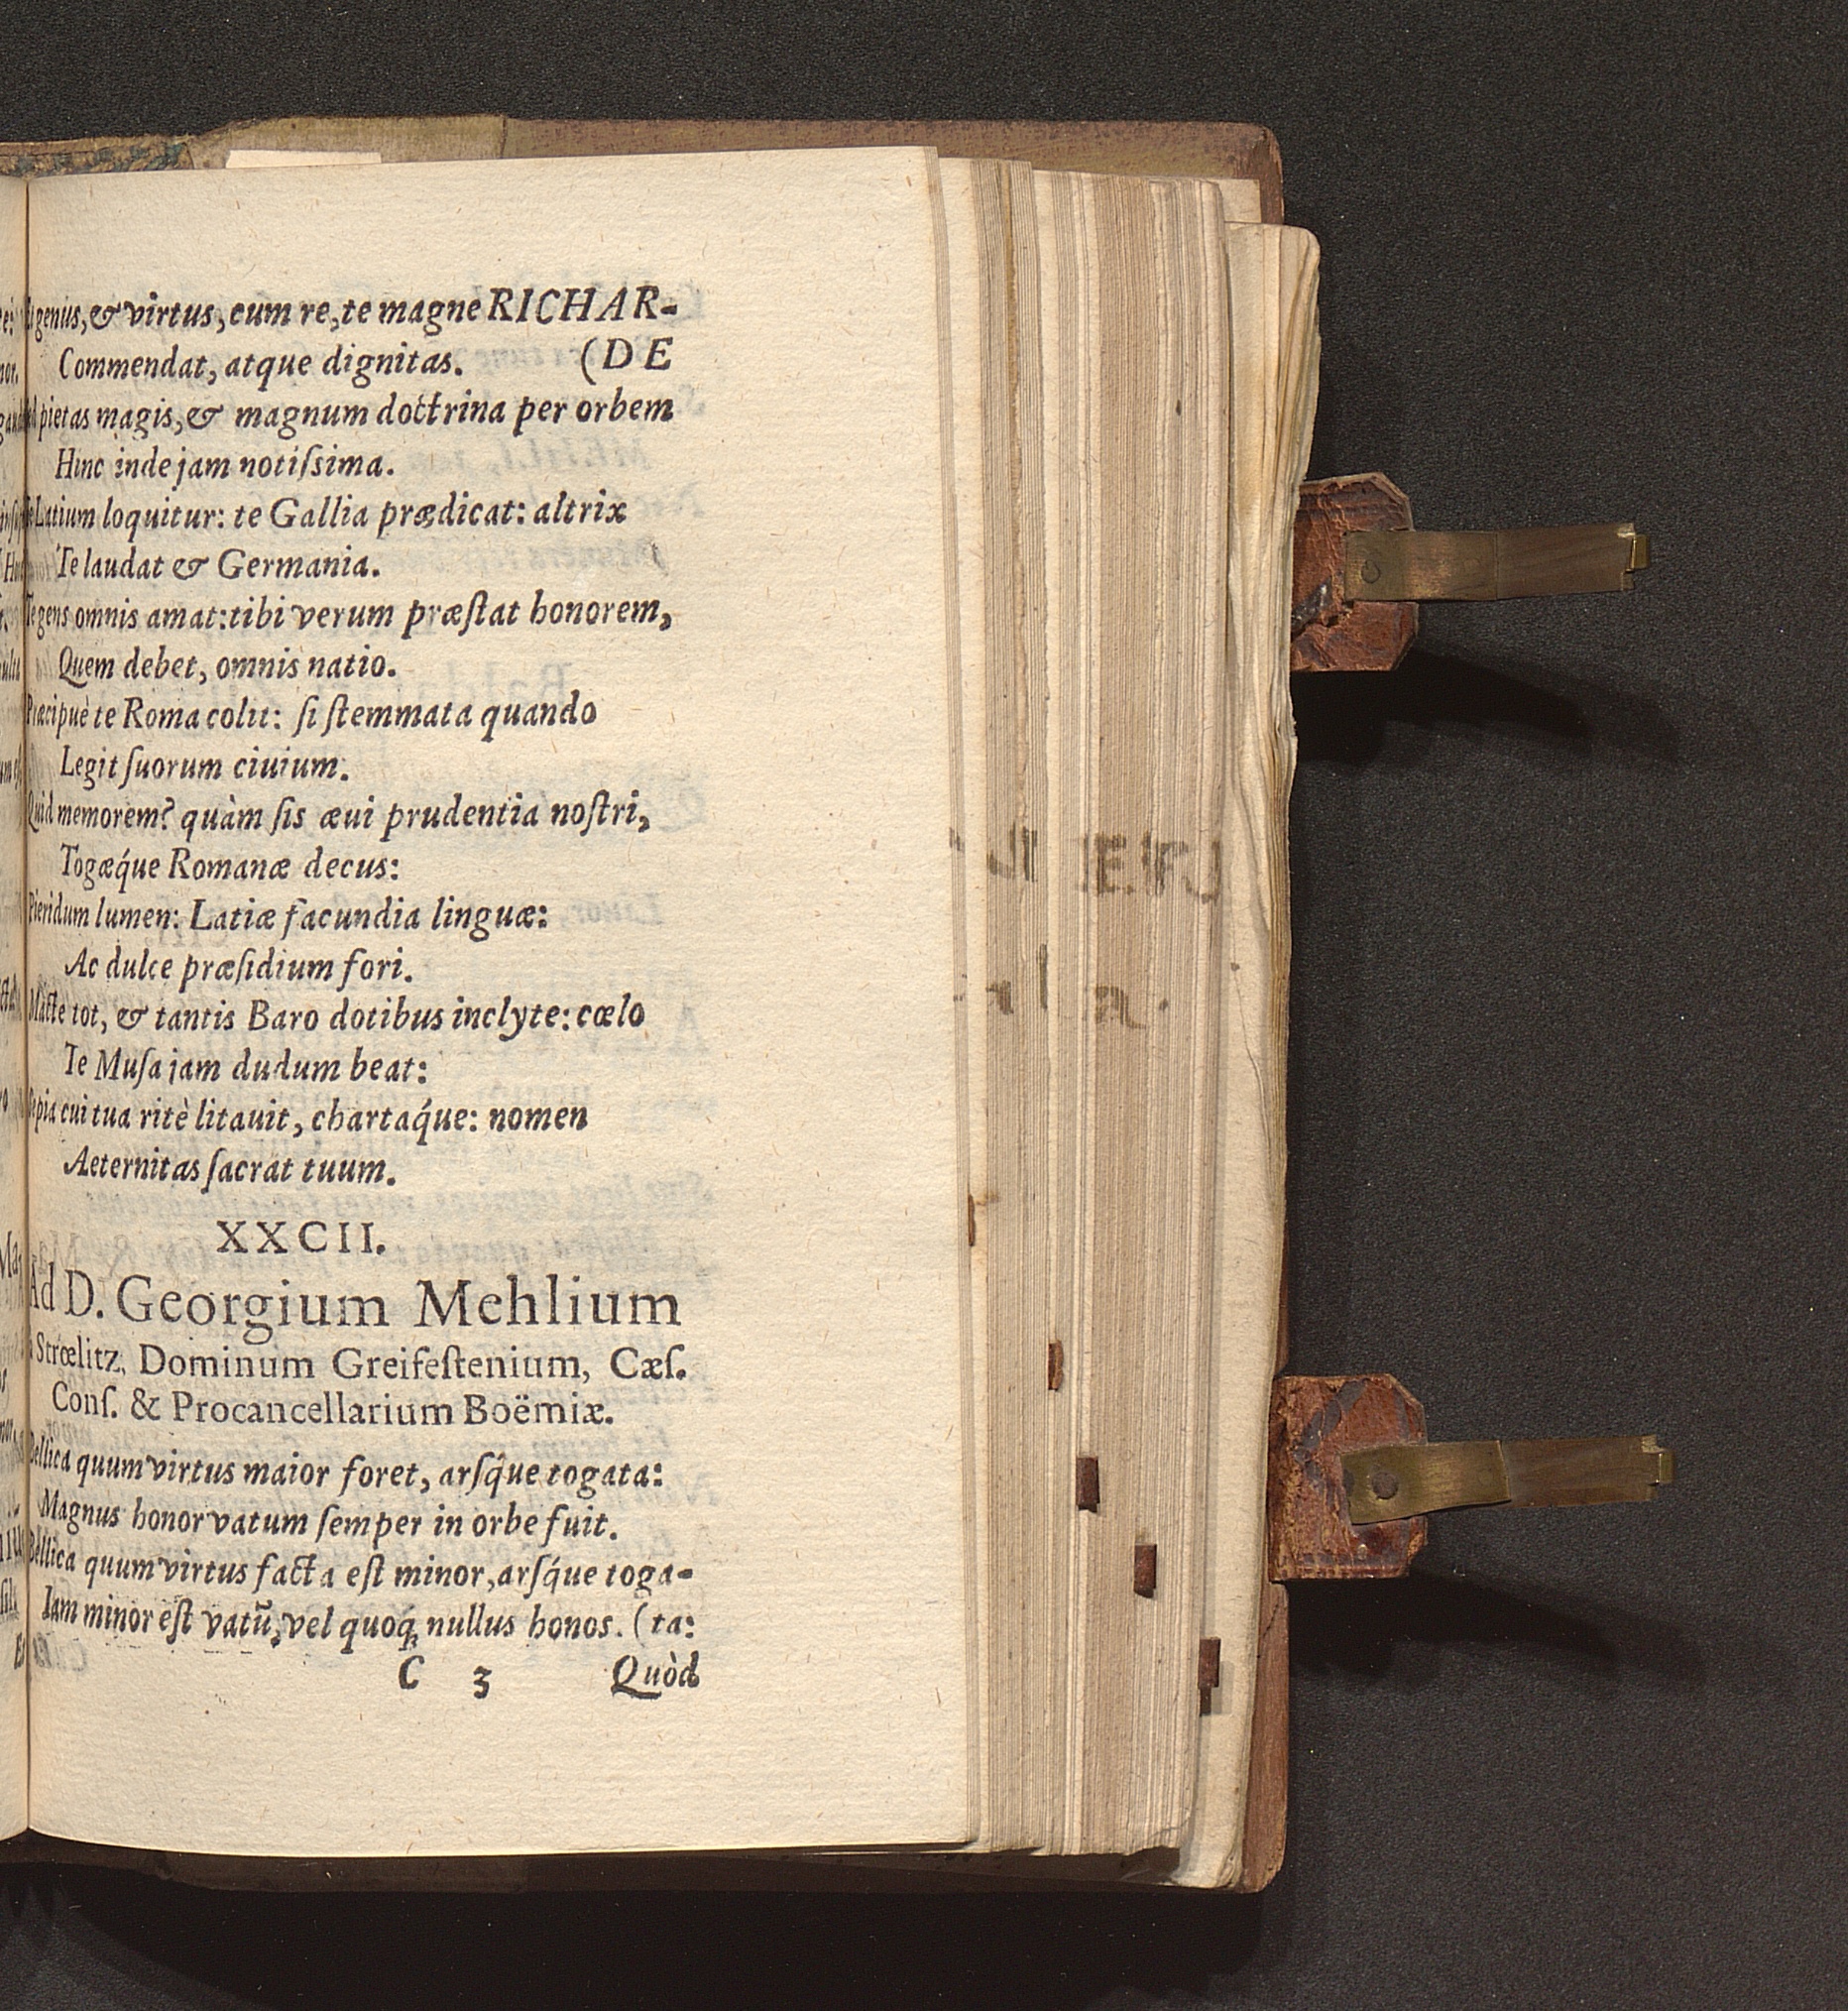 genius, & virtus, cum re, te magne RICHAR-
Commendat, atque dignitas. (DE
pietas magis, & magnum doctrina per orbem
Hinc inde jam notiſsima.
Latium loquitur: te Gallia prædicat: altrix
Te laudat & Germania.
Te gens omnis amat: tibi verum præſtat honorem,
Quem debet, omnis natio.
Præcipuè te Roma colit: ſi ſtemmata quando
Legit ſuorum ciuium.
Quid memorem? quàm ſis æui prudentia noſtri,
Togæq́ue Romanæ decus:
Pieridum lumen: Latiæ facundia linguæ:
Ac dulce præſidium fori.
Macte tot, & tantis Baro dotibus inclyte: cœlo
Te Muſa jam dudum beat:
pia cui tua ritè litauit, chartaq́ue: nomen
Aeternitas ſacrat tuum.
XXCII.
Ad D. Georgium Mehlium
Strœlitz, Dominum Greifeſtenium, Cæſ.
Conſ. & Procancellarium Boëmiæ.
Bellica quum virtus maior foret, arſq́ue togata:
Magnus honor vatum ſemper in orbe fuit.
Bellica quum virtus facta eſt minor, arſq́ue toga-
Iam minor eſt vatū, vel quoq́; nullus honos. (ta:
C 3 Quòd